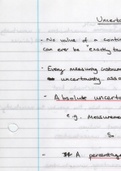 Uncerta
- No value of a conti
can ever be "exactly
- Every measuring instrum
uncertainty ass
- Absolute uncert
e.g. measurem
So
- A percentage